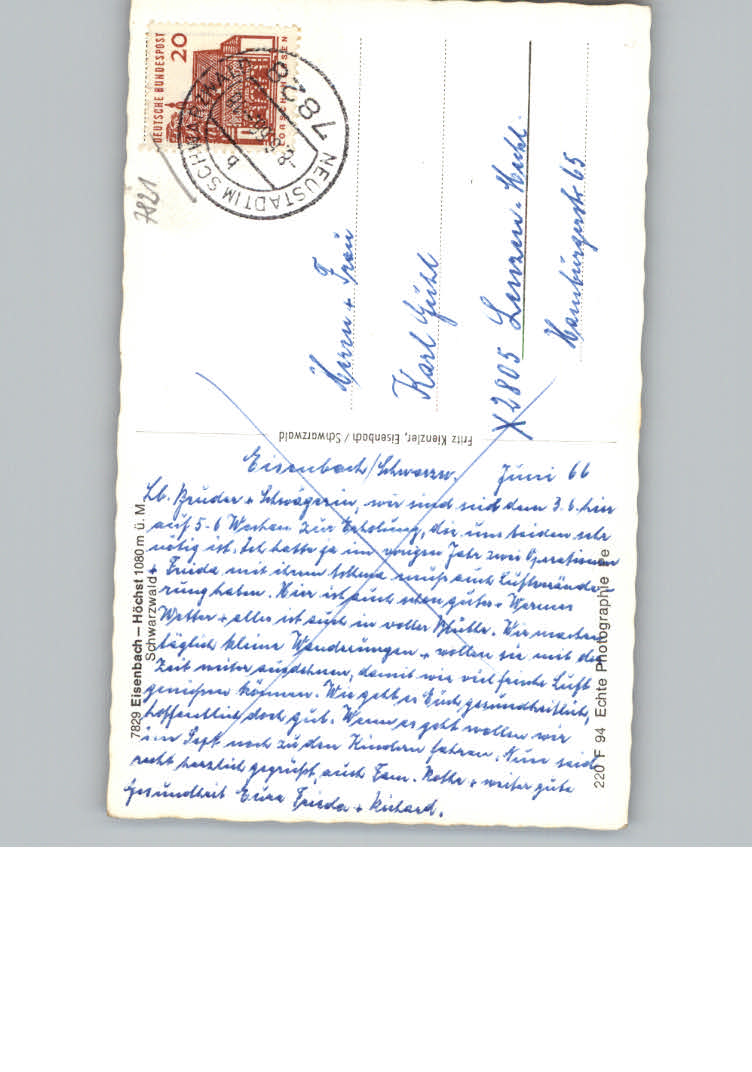 DEUTSCHE BUNDESPOST
20
LORSCH HESSEN
7821
782 NEUSTADT IM SCHWARZWALD
b
Herrn + Frau
Karl Gühl
X2805 Lenzen-Meckl.
Hamburgerstr 65
Fritz Kienzler, Eisenbach / Schwarzwald
7829 Eisenbach – Höchst 1080 m ü. M.
Schwarzwald
220 F 94 Echte Photographie
Eisenbach/Schwarzw. Juni 66
Lb. Bruder + Schwägerin, wir sind seid dem 3.6. hier
auf 5-6 Wochen zur Erholung, die uns beiden sehr
nötig ist. Ich hatte ja im vorigen Jahr zwei Operationen
+ Frieda mit ihrem Asthma muß auch Luftverände-
rung haben. Hier ist auch schon gutes + Warmes
Wetter + alles ist auch in voller Blüthe. Wir machen
täglich kleine Wanderungen + wollen sie mit der
Zeit weiter ausdehnen, damit wir viel frische Luft
genießen können. Wie geht es Euch gesundheitlich,
hoffentlich doch gut. Wenn es geht wollen wir
im Sept. noch zu den Kindern fahren. Nun seid
recht herzlich gegrüßt, auch Fam. + weiter gute
Gesundheit Eure Frieda + Richard.